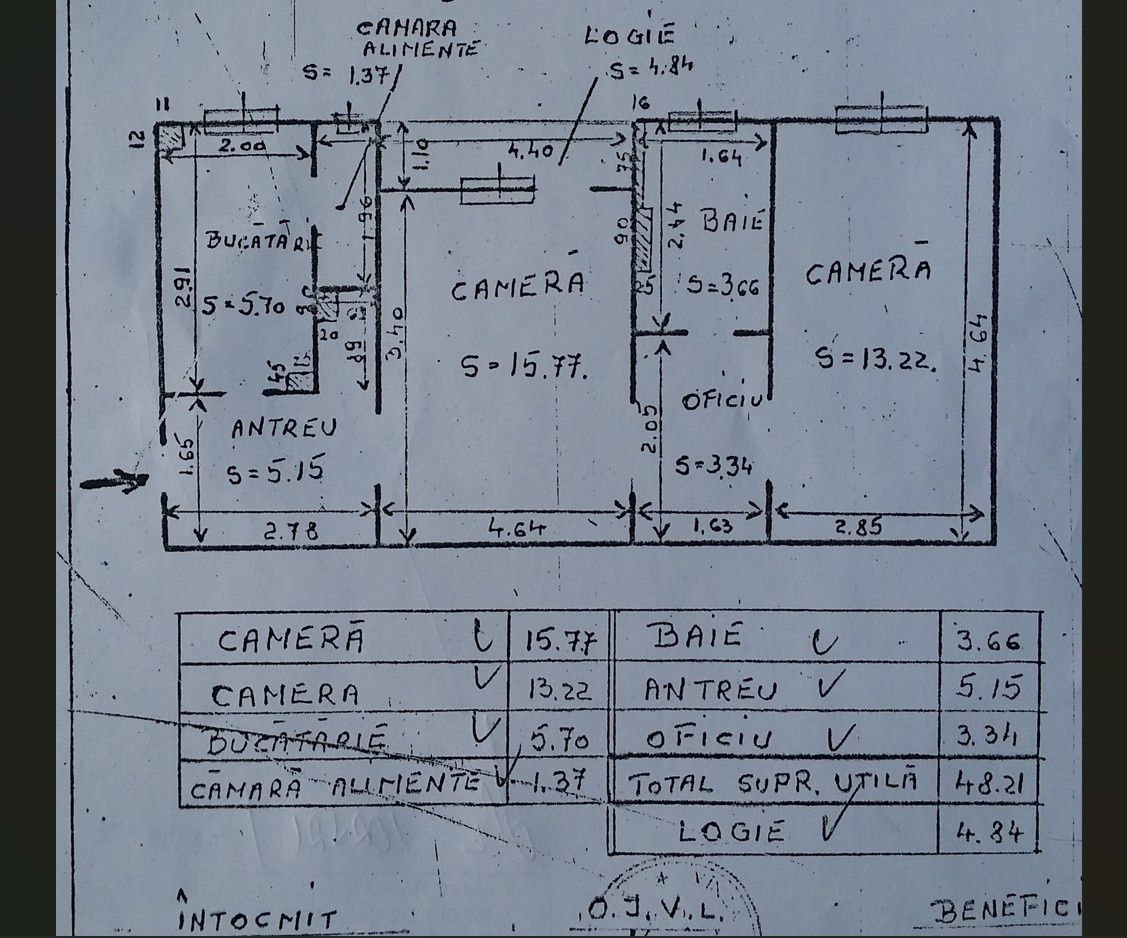 CAMARA
ALIMENTE
S= 1.37
LOGIE
S= 4.84
11
12
16
2.00
1.10
4.40
75
1.64
1.96
BUCĂTĂRIE
90
2.44
BAIE
2.91
S=5.70
CAMERĂ
25
S=3.66
CAMERĂ
20
89
3.40
S=15.77.
S=13.22.
4.64
45
OFICIU
ANTREU
2.05
1.65
S=5.15
S=3.34
2.78
4.64
1.63
2.85
CAMERĂ 15.77 BAIE 3.66
CAMERA 13.22 ANTREU 5.15
BUCĂTĂRIE 5.70 OFICIU 3.34
CĂMARĂ ALIMENTE 1.37 TOTAL SUPR. UTILĂ 48.21
LOGIE 4.84
ÎNTOCMIT
O.J.V.L.
BENEFICI